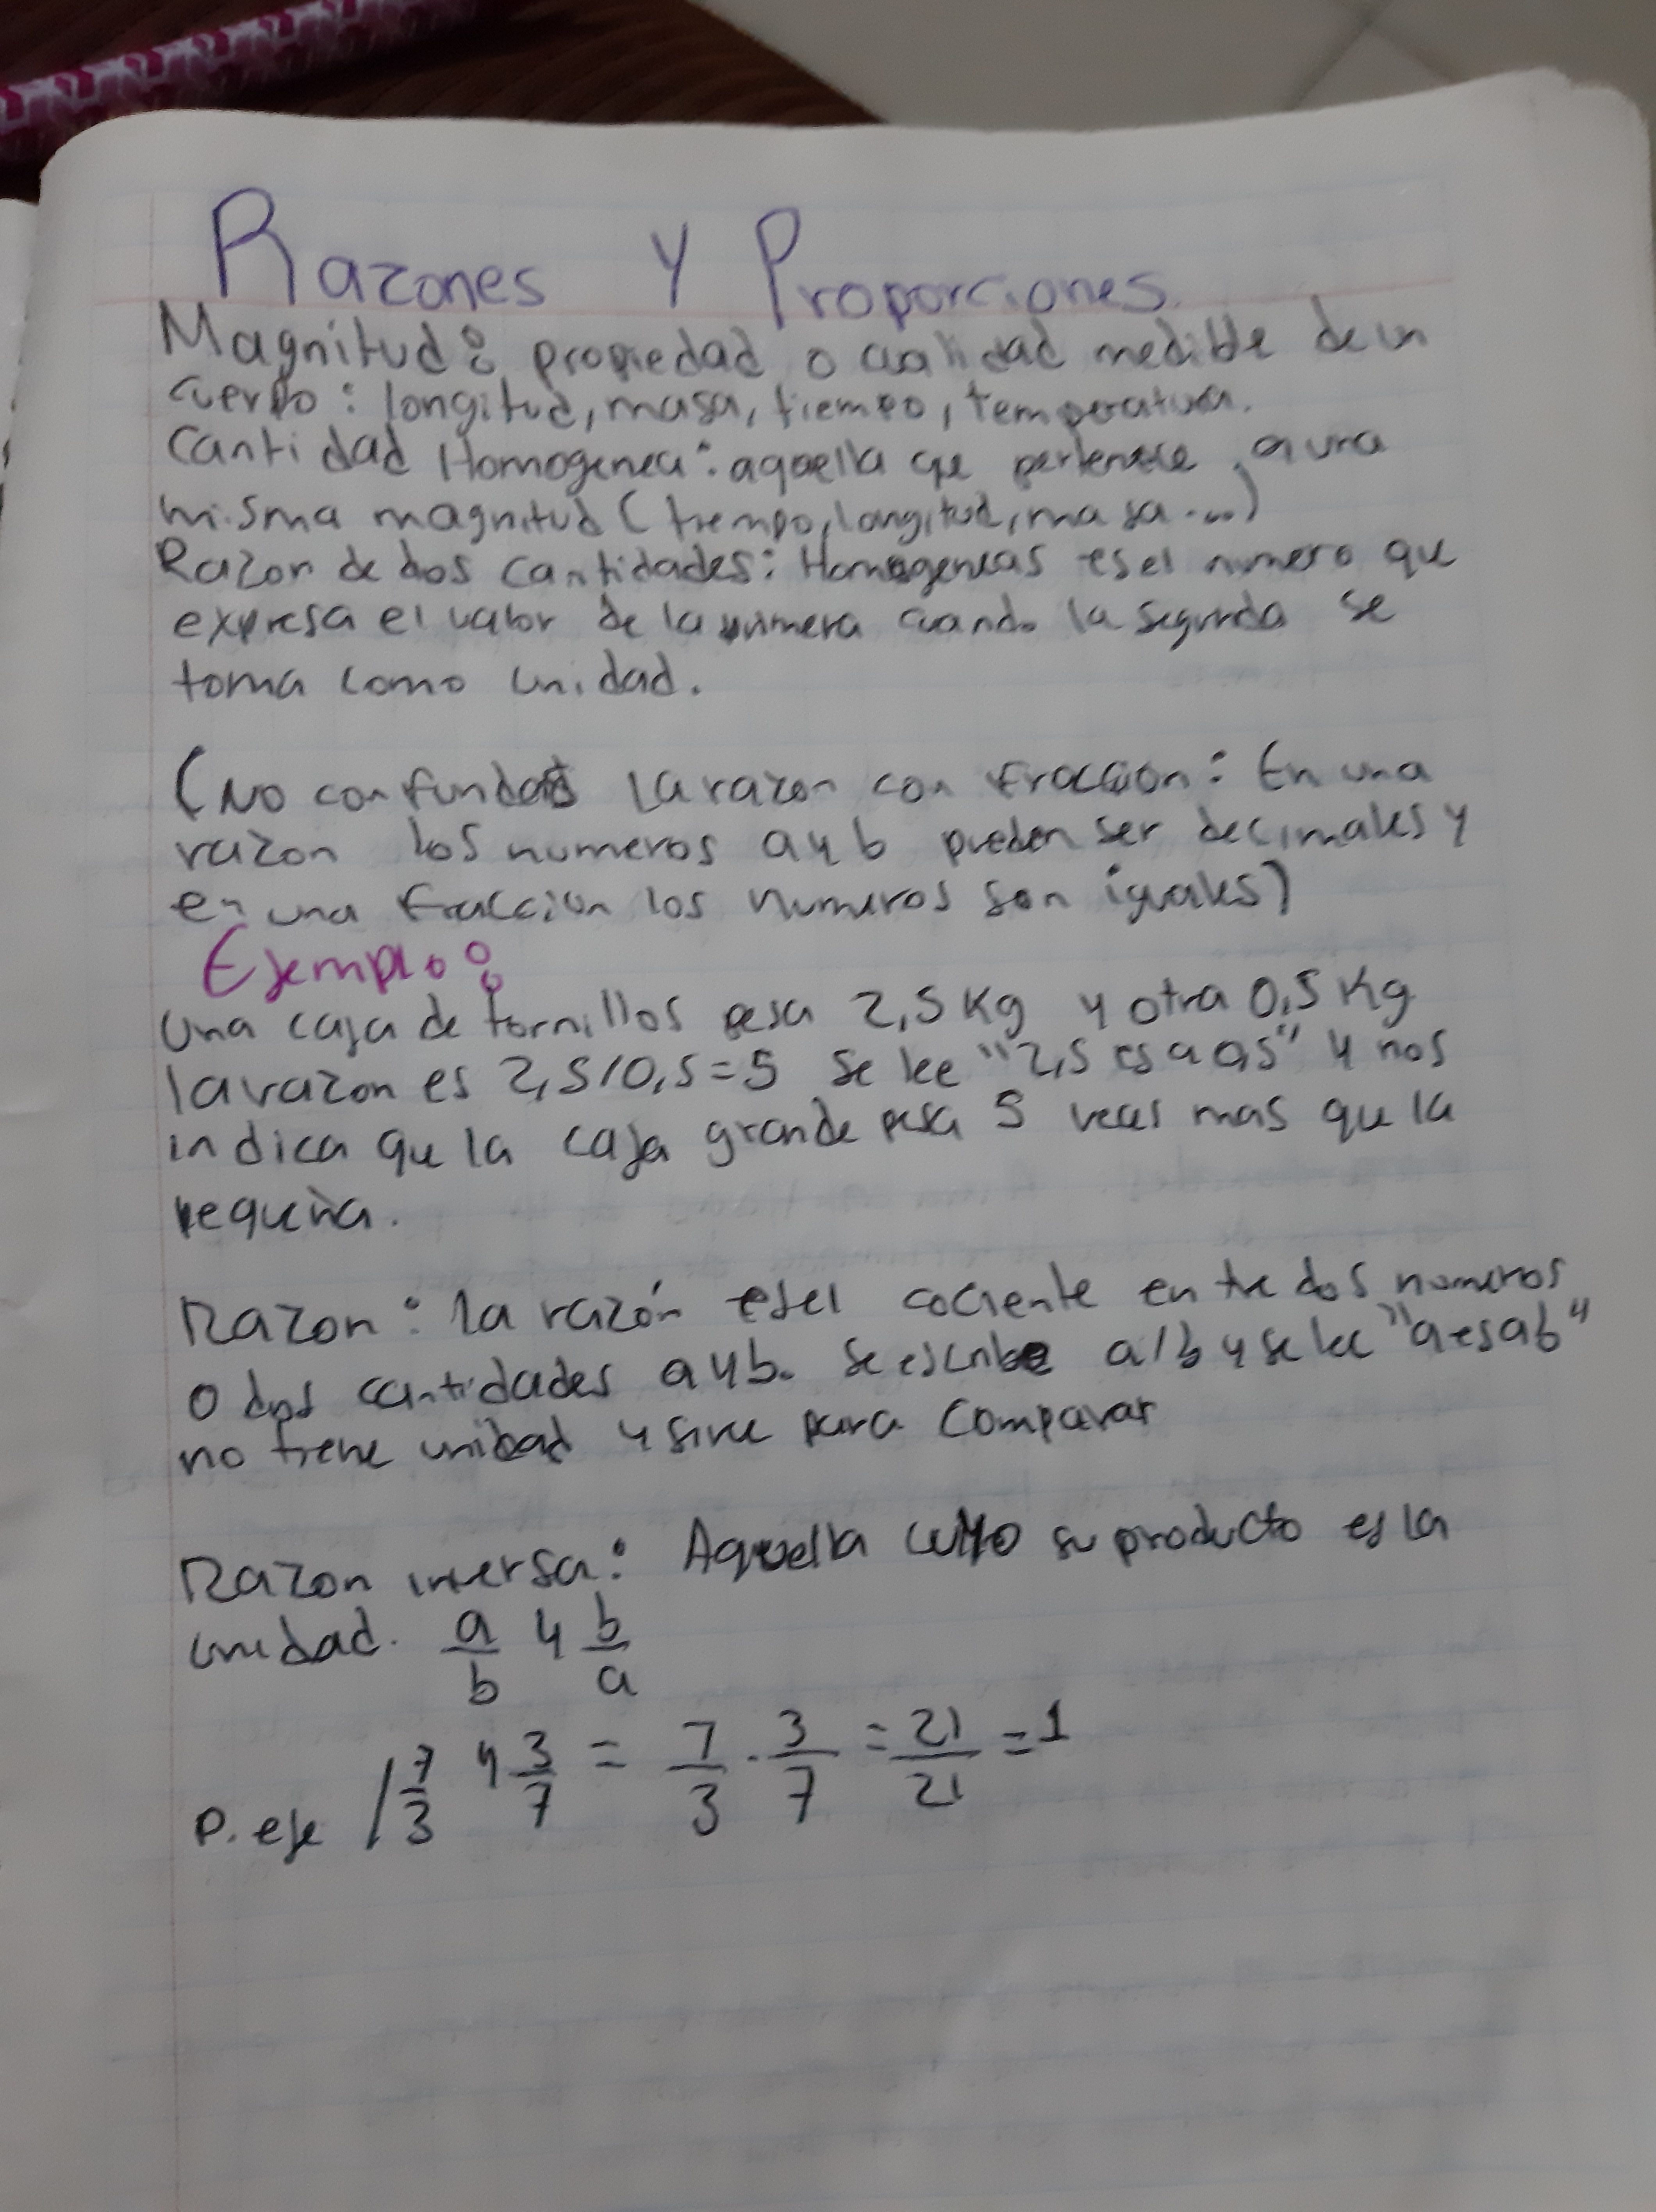 Razones y Proporciones
Magnitud: propiedad o cualidad medible de un
cuerpo: longitud, masa, tiempo, temperatura.
Cantidad Homogenea: aquella que pertenece a una
misma magnitud (tiempo, longitud, masa...)
Razon de dos cantidades: Homogeneas es el numero que
expresa el valor de la primera cuando la segunda se
toma como unidad.
(No confundas la razon con fracción: En una
razon los numeros a y b pueden ser decimales y
en una fraccion los numeros son iguales)
Ejemplo:
Una caja de tornillos pesa 2,5 Kg y otra 0,5 Kg
la razon es 2,5/0,5=5 Se lee "2,5 es a 0,5" y nos
indica que la caja grande pesa 5 veces mas que la
pequeña.
Razon: la razón es el cociente entre dos numeros
o dos cantidades a y b. Se escribe a/b y se lee "a es a b"
no tiene unidad y sirve para comparar
Razon inversa: Aquella cuyo su producto es la
unidad. a/b y b/a
P. eje / 7/3 y 3/7 = 7/3 · 3/7 = 21/21 = 1